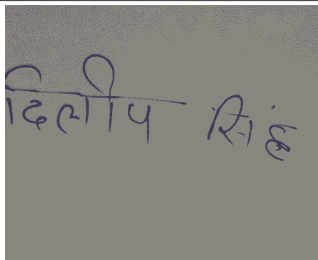 दिलीप सिंह